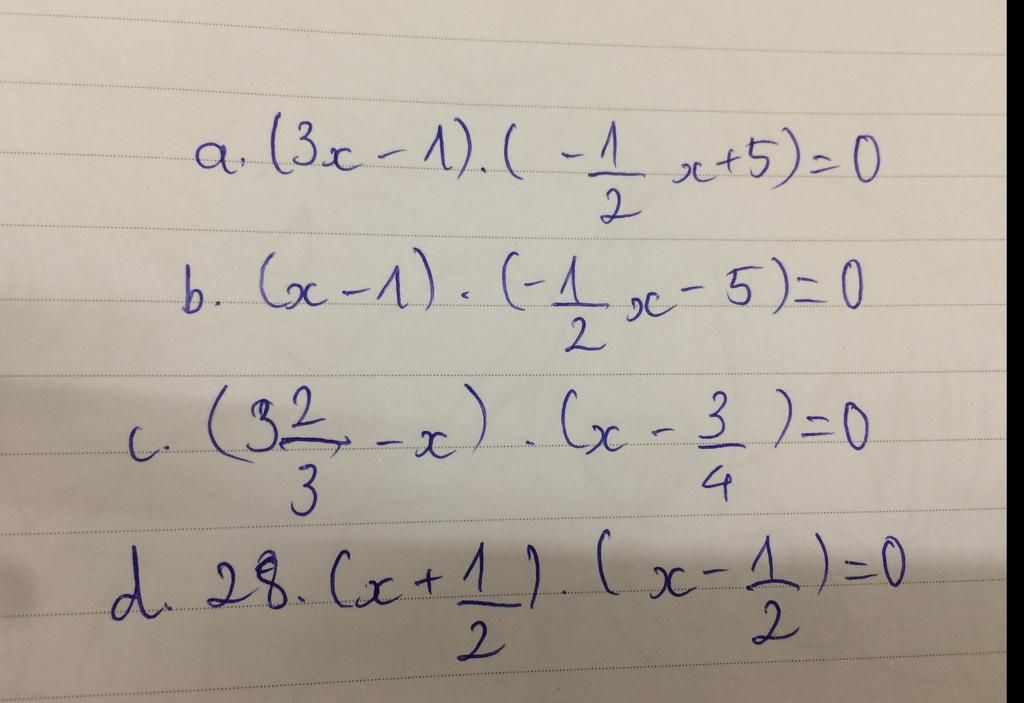 a. (3x - 1).( -1/2 x+5)=0
b. (x-1) . (-1/2 x - 5)=0
c. (3 2/3 - x) . (x - 3/4)=0
d. 28. (x+1/2). (x - 1/2)=0